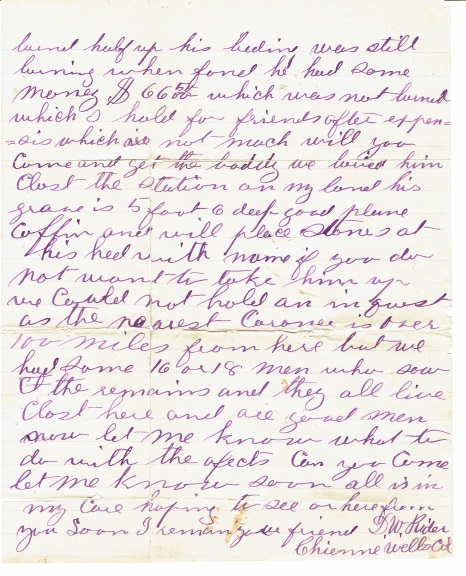 burnd half up his beding was still
burning when fond he had some
money $ 66 50/00 which was not burned
which I hold for friends after expen=
=sis which is not much will you
Come and get the baddy we buried him
Clost the station on my land his
grave is 5 foot 6 deep good plane
Coffin and will place stones at
his hed with name if you do
not want to take him up
we Could not hold an in quest
as the nearest Coroner is over
100 miles from here but we
had some 16 or 18 men who saw
the remains and they all live
Clost here and are good men
now let me know what to
do with the afects Can you Come
let me know soon all is in
my Care hoping to see or here from
you Soon I remain your friend D. W. Rider
Chienne Wells Col